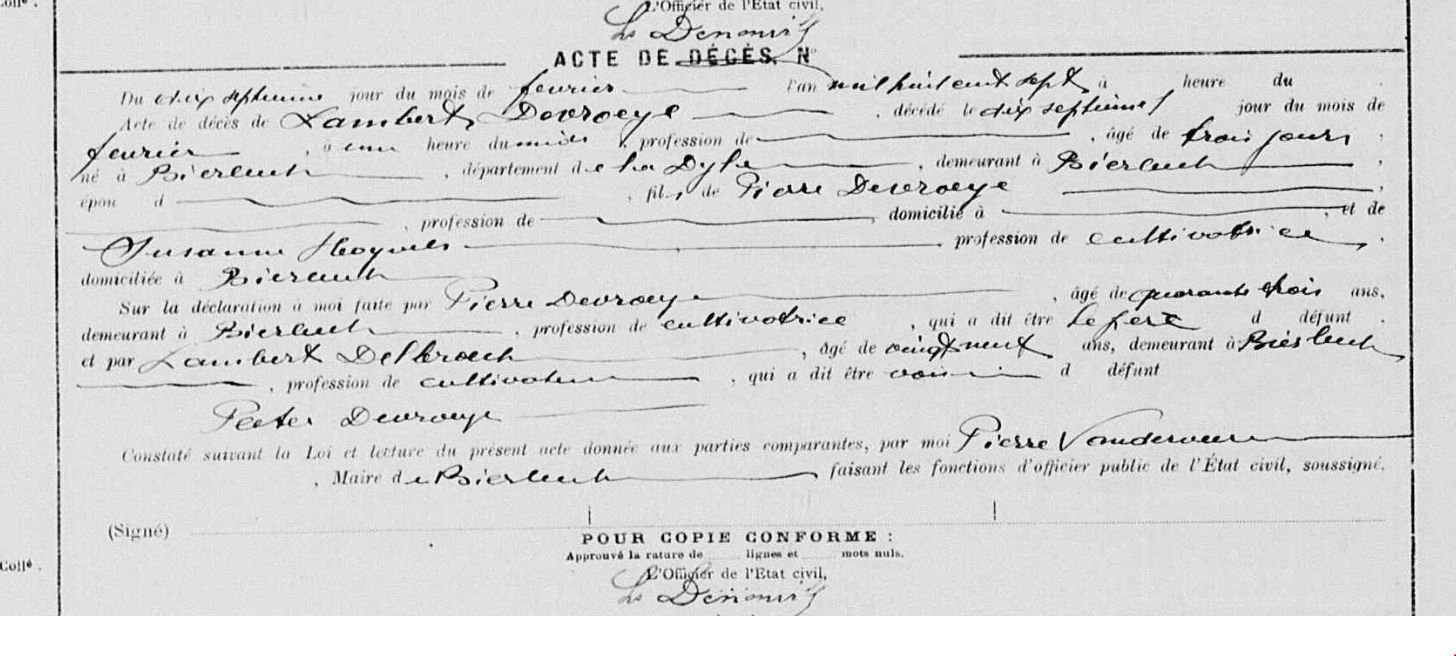 L'Officier de l'État civil,
ACTE DE DÉCÈS. N°
Du dix septieme jour du mois de fevrier l'an mil huit cent sept à heure du
Acte de décès de Lambert Devroeye , décédé le dix septieme jour du mois de
fevrier , à heure du midi , profession de , âgé de trois jours ,
né à Bierbeek , département de la Dyle , demeurant à Bierbeek ,
épou d , fils de Pierre Devroeye ,
, profession de , domicilié à , et de
Susanne , profession de cultivatrice ,
domiciliée à Bierbeek
Sur la déclaration à moi faite par Pierre Devroeye , âgé de quarante trois ans,
demeurant à Bierbeek , profession de cultivatrice , qui a dit être le pere d défunt .
et par Lambert , âgé de ans, demeurant à Bierbeek
, profession de cultivateur , qui a dit être voisin d défunt
Peeter Devroeye
Constaté suivant la Loi et lecture du présent acte donnée aux parties comparantes, par moi Pierre
, Maire de Bierbeek , faisant les fonctions d'officier public de l'État civil, soussigné.
(Signé)
POUR COPIE CONFORME :
Approuvé la rature de lignes et mots nuls.
Collé .
L'Officier de l'État civil,